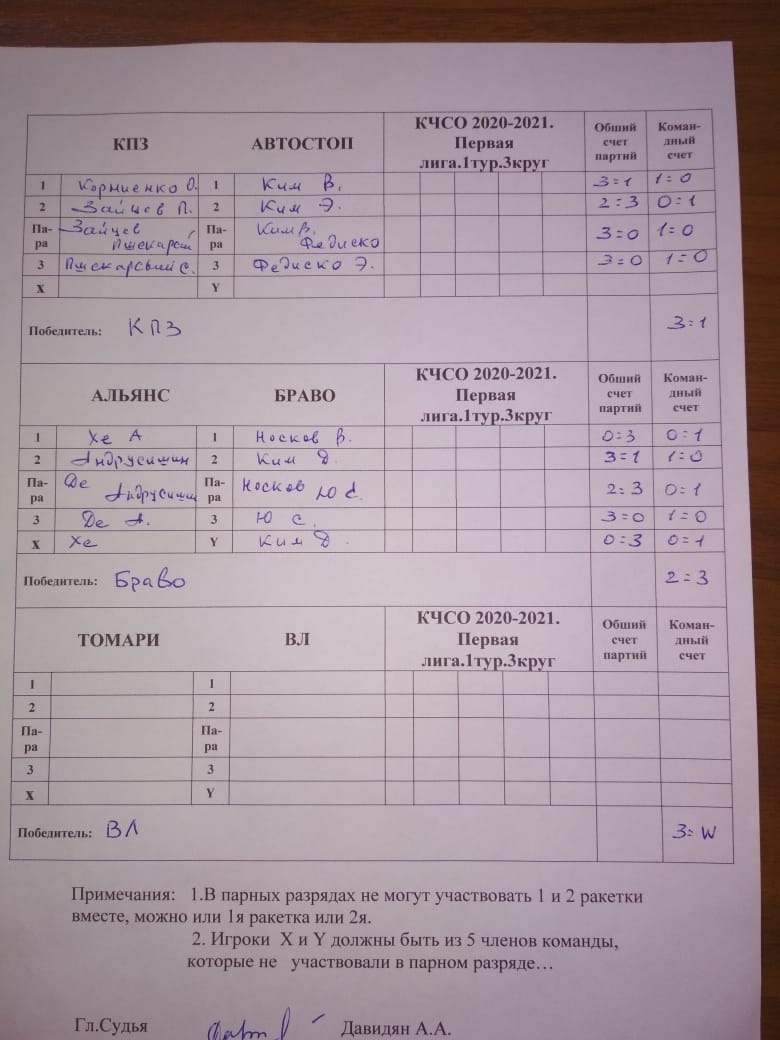 КПЗ АВТОСТОП КЧСО 2020-2021. Первая лига.1тур.3круг Общий счет партий Коман-дный счет
1 Корниенко О. 1 Ким В. 3=1 1=0
2 Зайцев П. 2 Ким Э. 2=3 0=1
Па-ра Зайцев Пшекарский Па-ра Ким В. Федиско 3=0 1=0
3 Пшекарский С. 3 Федиско Э. 3=0 1=0
X Y
Победитель: КПЗ 3=1
АЛЬЯНС БРАВО КЧСО 2020-2021. Первая лига.1тур.3круг Общий счет партий Коман-дный счет
1 Хе А 1 Носков В. 0=3 0=1
2 Андрусишин 2 Ким Д. 3=1 1=0
Па-ра Де Андрусишин Па-ра Носков Ю С. 2=3 0=1
3 Де А. 3 Ю С. 3=0 1=0
X Хе Y Ким Д 0=3 0=1
Победитель: Браво 2=3
ТОМАРИ ВЛ КЧСО 2020-2021. Первая лига.1тур.3круг Общий счет партий Коман-дный счет
1 1
2 2
Па-ра Па-ра
3 3
X Y
Победитель: ВЛ 3=W
Примечания: 1.В парных разрядах не могут участвовать 1 и 2 ракетки
вместе, можно или 1я ракетка или 2я.
2. Игроки X и Y должны быть из 5 членов команды,
которые не участвовали в парном разряде…
Гл.Судья Давидян А.А.